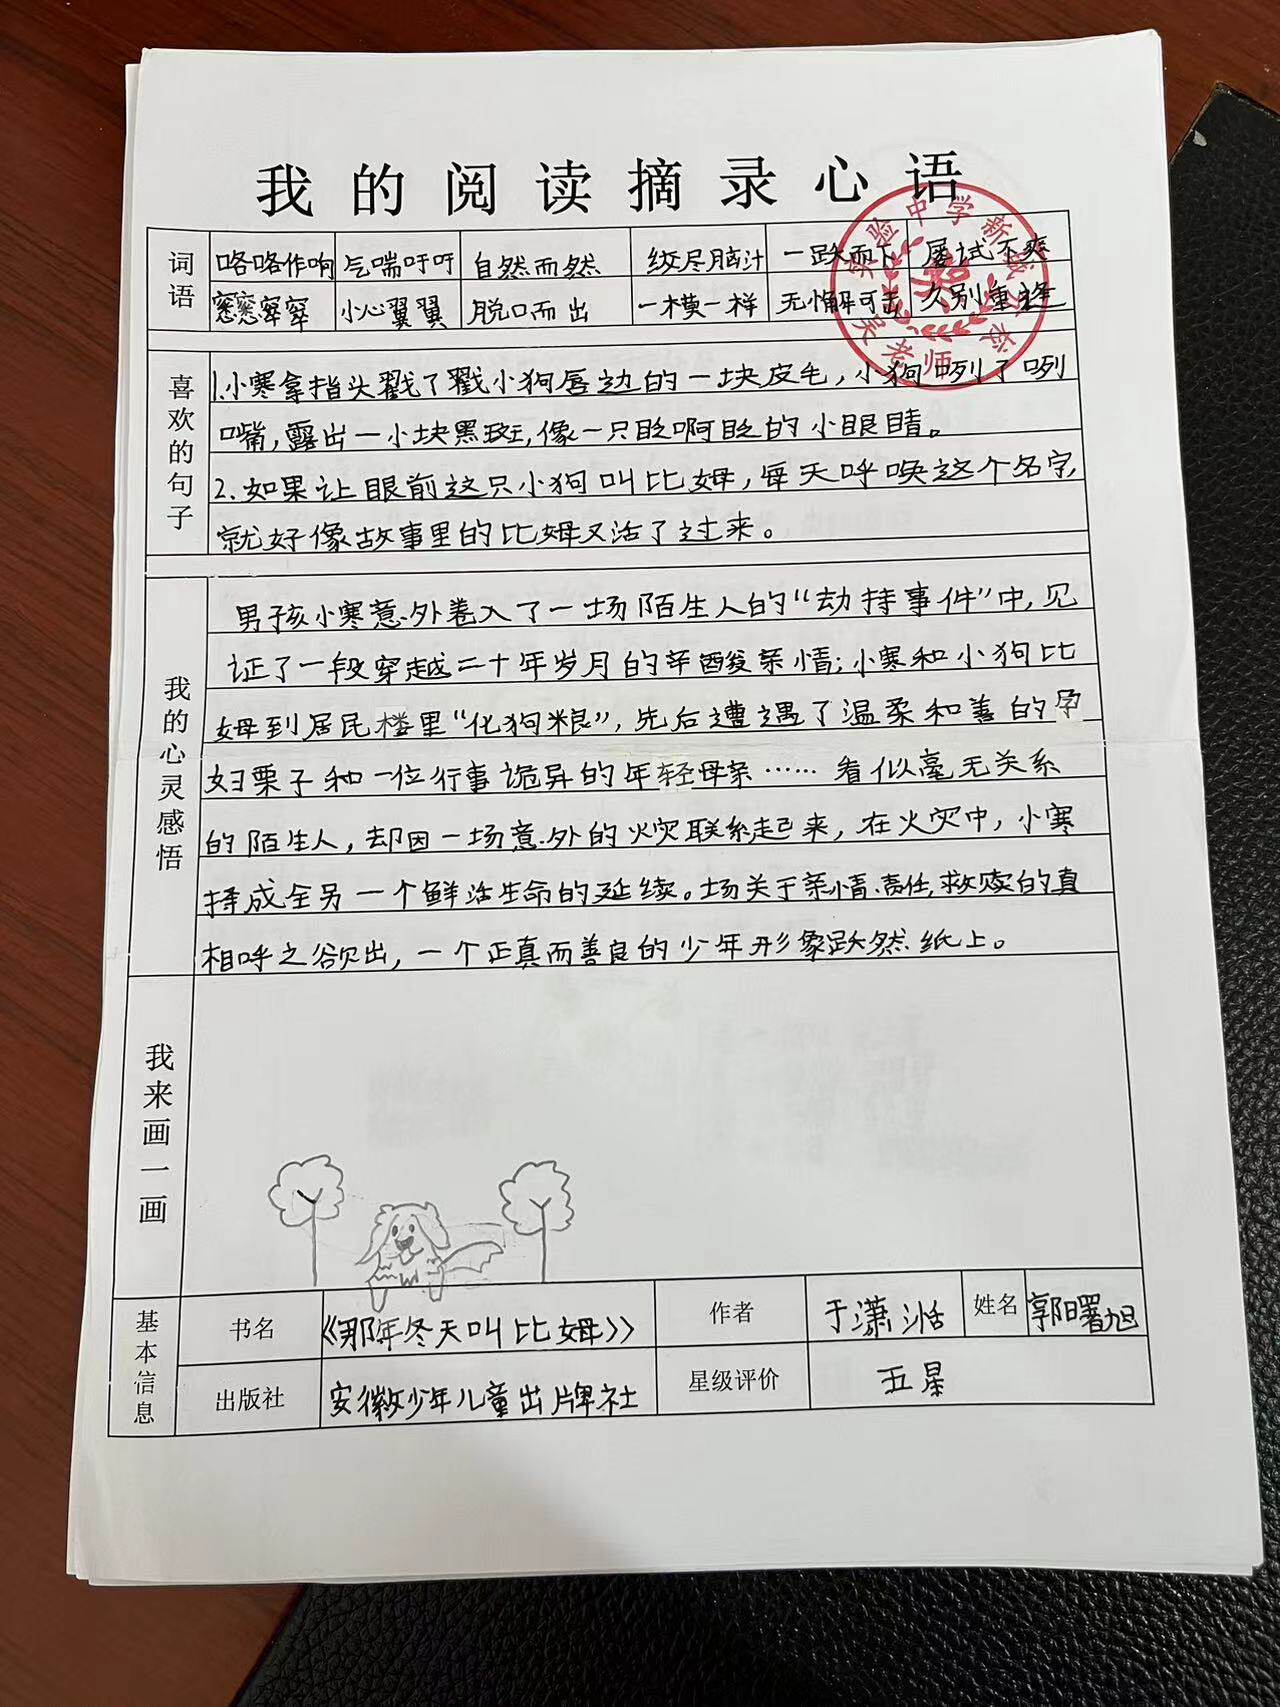 我的阅读摘录心语
词语
咯咯作响 气喘吁吁 自然而然 绞尽脑汁 一跃而下 屡试不爽
窸窸窣窣 小心翼翼 脱口而出 一模一样 无懈可击 久别重逢
实验中学新城分校
吴老师
喜欢的句子
1.小寒拿指头戳了戳小狗唇边的一块皮毛，小狗咧了咧
嘴，露出一小块黑斑，像一只眨啊眨的小眼睛。
2.如果让眼前这只小狗叫比姆，每天呼唤这个名字，
就好像故事里的比姆又活了过来。
我的心灵感悟
男孩小寒意外卷入了一场陌生人的“劫持事件”中，见
证了一段穿越二十年岁月的辛酸亲情；小寒和小狗比
姆到居民楼里“化狗粮”，先后遭遇了温柔和善的孕
妇栗子和一位行事诡异的年轻母亲……看似毫无关系
的陌生人，却因一场意外的火灾联系起来，在火灾中，小寒
择成全另一个鲜活生命的延续。场关于亲情、责任，救赎的真
相呼之欲出，一个正真而善良的少年形象跃然纸上。
我来画一画
基本信息
书名 《那年冬天叫比姆》 作者 于潇湉 姓名 郭曙旭
出版社 安徽少年儿童出牌社 星级评价 五星